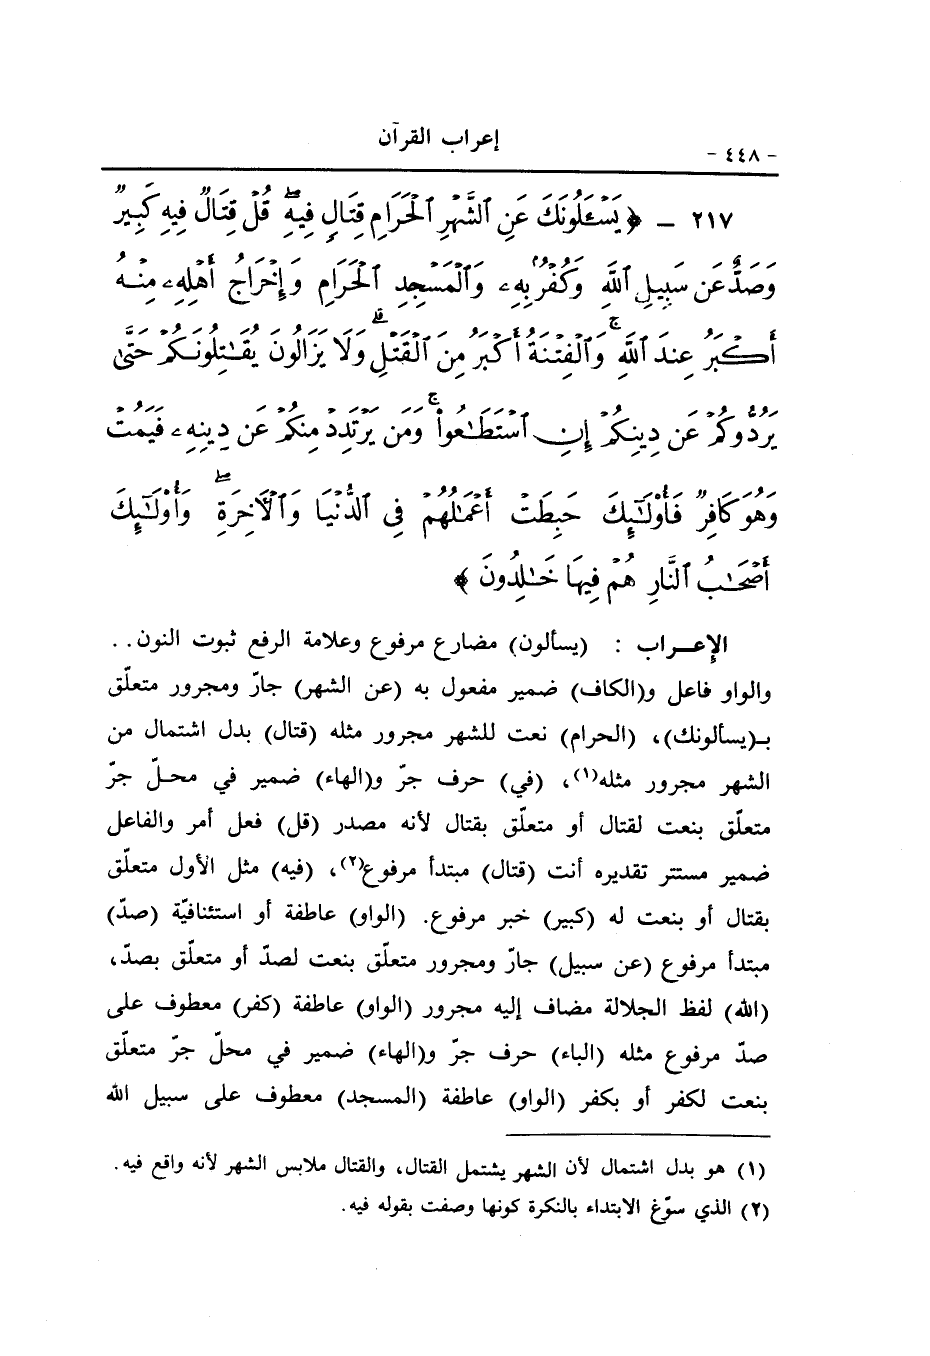 - ٤٤٨ -
إعراب القرآن
٢١٧ ـ ﴿ يَسْـَٔلُونَكَ عَنِ ٱلشَّهْرِ ٱلْحَرَامِ قِتَالٍ فِيهِ ۖ قُلْ قِتَالٌ فِيهِ كَبِيرٌ
وَصَدٌّ عَن سَبِيلِ ٱللَّهِ وَكُفْرٌۢ بِهِۦ وَٱلْمَسْجِدِ ٱلْحَرَامِ وَإِخْرَاجُ أَهْلِهِۦ مِنْهُ
أَكْبَرُ عِندَ ٱللَّهِ ۚ وَٱلْفِتْنَةُ أَكْبَرُ مِنَ ٱلْقَتْلِ ۗ وَلَا يَزَالُونَ يُقَـٰتِلُونَكُمْ حَتَّىٰ
يَرُدُّوكُمْ عَن دِينِكُمْ إِنِ ٱسْتَطَـٰعُوا۟ ۚ وَمَن يَرْتَدِدْ مِنكُمْ عَن دِينِهِۦ فَيَمُتْ
وَهُوَ كَافِرٌ فَأُو۟لَـٰٓئِكَ حَبِطَتْ أَعْمَـٰلُهُمْ فِى ٱلدُّنْيَا وَٱلْـَٔاخِرَةِ ۖ وَأُو۟لَـٰٓئِكَ
أَصْحَـٰبُ ٱلنَّارِ هُمْ فِيهَا خَـٰلِدُونَ ﴾
الإعـراب : (يسألون) مضارع مرفوع وعلامة الرفع ثبوت النون..
والواو فاعل و(الكاف) ضمير مفعول به (عن الشهر) جارّ ومجرور متعلّق
بـ(يسألونك)، (الحرام) نعت للشهر مجرور مثله (قتال) بدل اشتمال من
الشهر مجرور مثله(١)، (في) حرف جرّ و(الهاء) ضمير في محلّ جرّ
متعلّق بنعت لقتال أو متعلّق بقتال لأنه مصدر (قل) فعل أمر والفاعل
ضمير مستتر تقديره أنت (قتال) مبتدأ مرفوع(٢)، (فيه) مثل الأول متعلّق
بقتال أو بنعت له (كبير) خبر مرفوع. (الواو) عاطفة أو استئنافيّة (صدّ)
مبتدأ مرفوع (عن سبيل) جارّ ومجرور متعلّق بنعت لصدّ أو متعلّق بصدّ،
(الله) لفظ الجلالة مضاف إليه مجرور (الواو) عاطفة (كفر) معطوف على
صدّ مرفوع مثله (الباء) حرف جرّ و(الهاء) ضمير في محلّ جرّ متعلّق
بنعت لكفر أو بكفر (الواو) عاطفة (المسجد) معطوف على سبيل الله
(١) هو بدل اشتمال لأن الشهر يشتمل القتال، والقتال ملابس الشهر لأنه واقع فيه.
(٢) الذي سوّغ الابتداء بالنكرة كونها وصفت بقوله فيه.